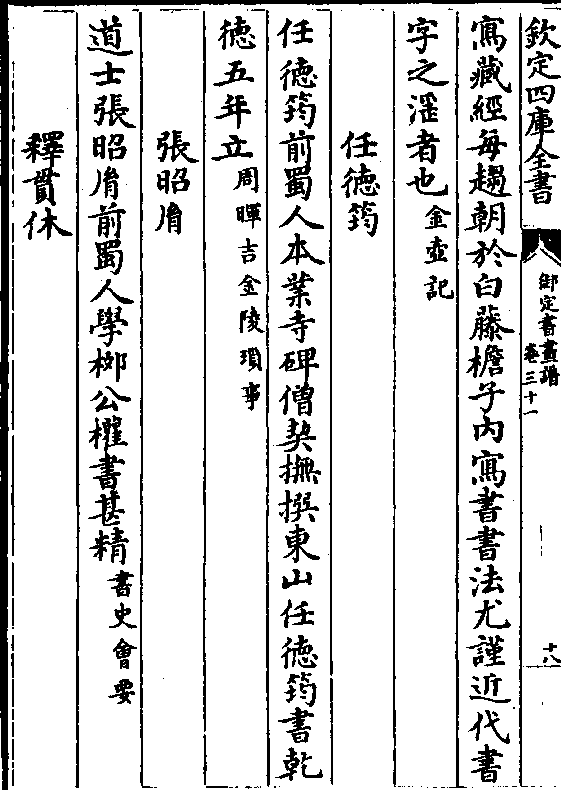 欽定四庫全書
御定書畫譜
卷三十一
十八
寫藏經每趨朝於白藤檐子內寫書書法尤謹近代書
字之滛者也金壺記
任德筠
任德筠前蜀人本業寺碑僧契撫撰東山任德筠書乾
德五年立周暉吉金陵瑣事
張昭胤
道士張昭胤前蜀人學柳公權書甚精書史會要
釋貫休